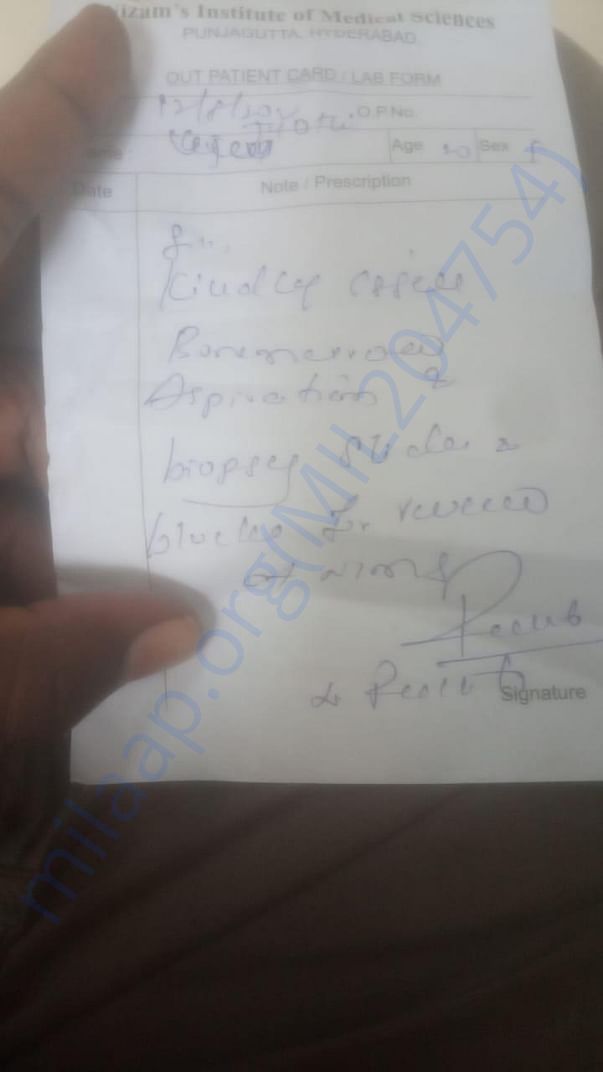 Nizam's Institute of Medical Sciences
PUNJAGUTTA, HYDERABAD.
OUT PATIENT CARD / LAB FORM
O.P.No.
Jyothi
Age 20 Sex F
Date Note / Prescription
Kindly issue
Bonemarrow
Aspiration &
biopsy slides &
blocks for review
at NIMS
Signature
milaap.org(MH_204754)